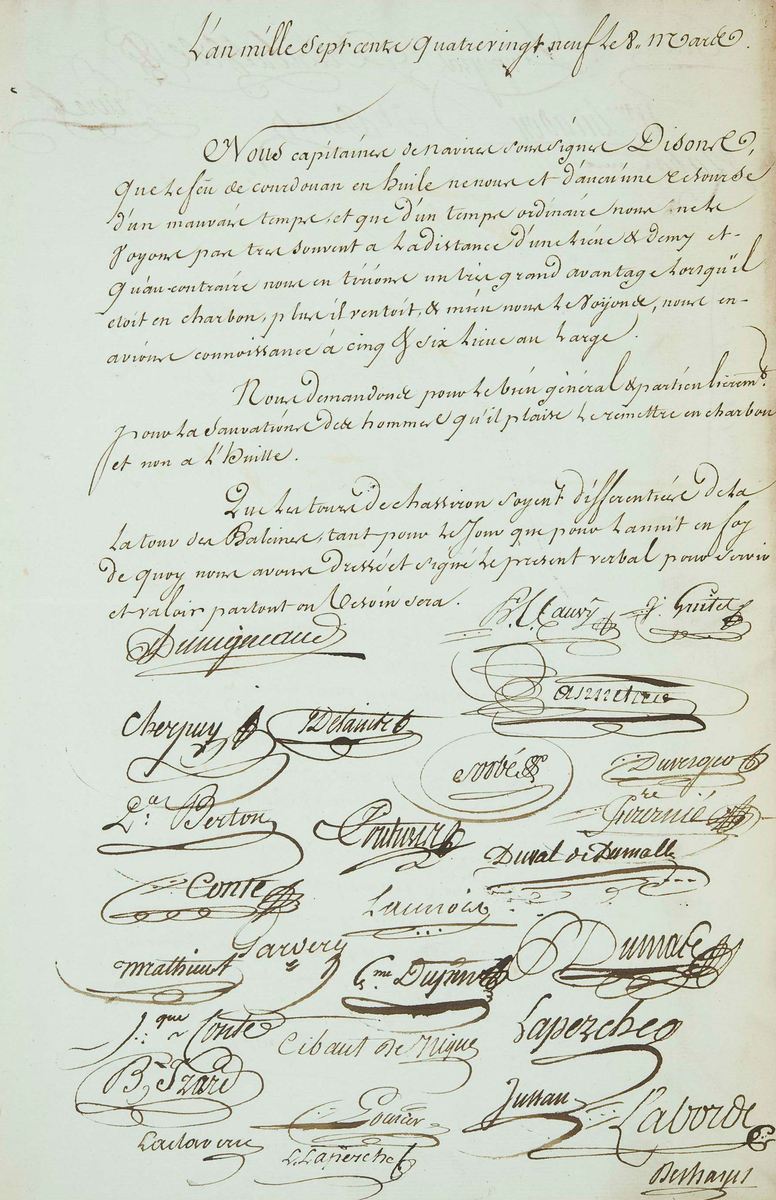 L'an mille sept cents quatrevingt neuf le 8.. Mards.
Nous capitaines de navires soussignés Disons,
que le feu de courdouan en huile ne nous et d'aucu'une resourse
d'un mauvais temps, et que d'un temps ordinaire nous ne le
voyons pas tres souvent a la distance d'une lieue & demy et-
qu'au-contraire nous en tirions un tres grand avantage lorsqu'il
etoit en charbon, plus il ventoit, & mieu nous le voyonds, nous en-
avions connoissance à cinq & six lieue au large.
Nous demandonds pour le bien général & particulièremt.
pour la sauvations des hommes qu'il plaise le remettre en charbon
et non a l'huille.
Que les tours de chassiron soyent differentiées de la
la tour des Baleines, tant pour le Jour que pour la nuit en foy
de quoy nous avons dressé et signé le present verbal pour servir
et valoir partout ou besoin sera.
Cherpuy
Sorbé
Duvergeo
Ds. Berton
Fournié
Couturie
Duval de Dumalle
Conte
Launois
Garvery
Mathieu
Dumas
Jque Conte
Cibaut de Nique
Laperche
B. Izard
Gourier
Jullan
Laborde
Laclaverie
L. Laperche